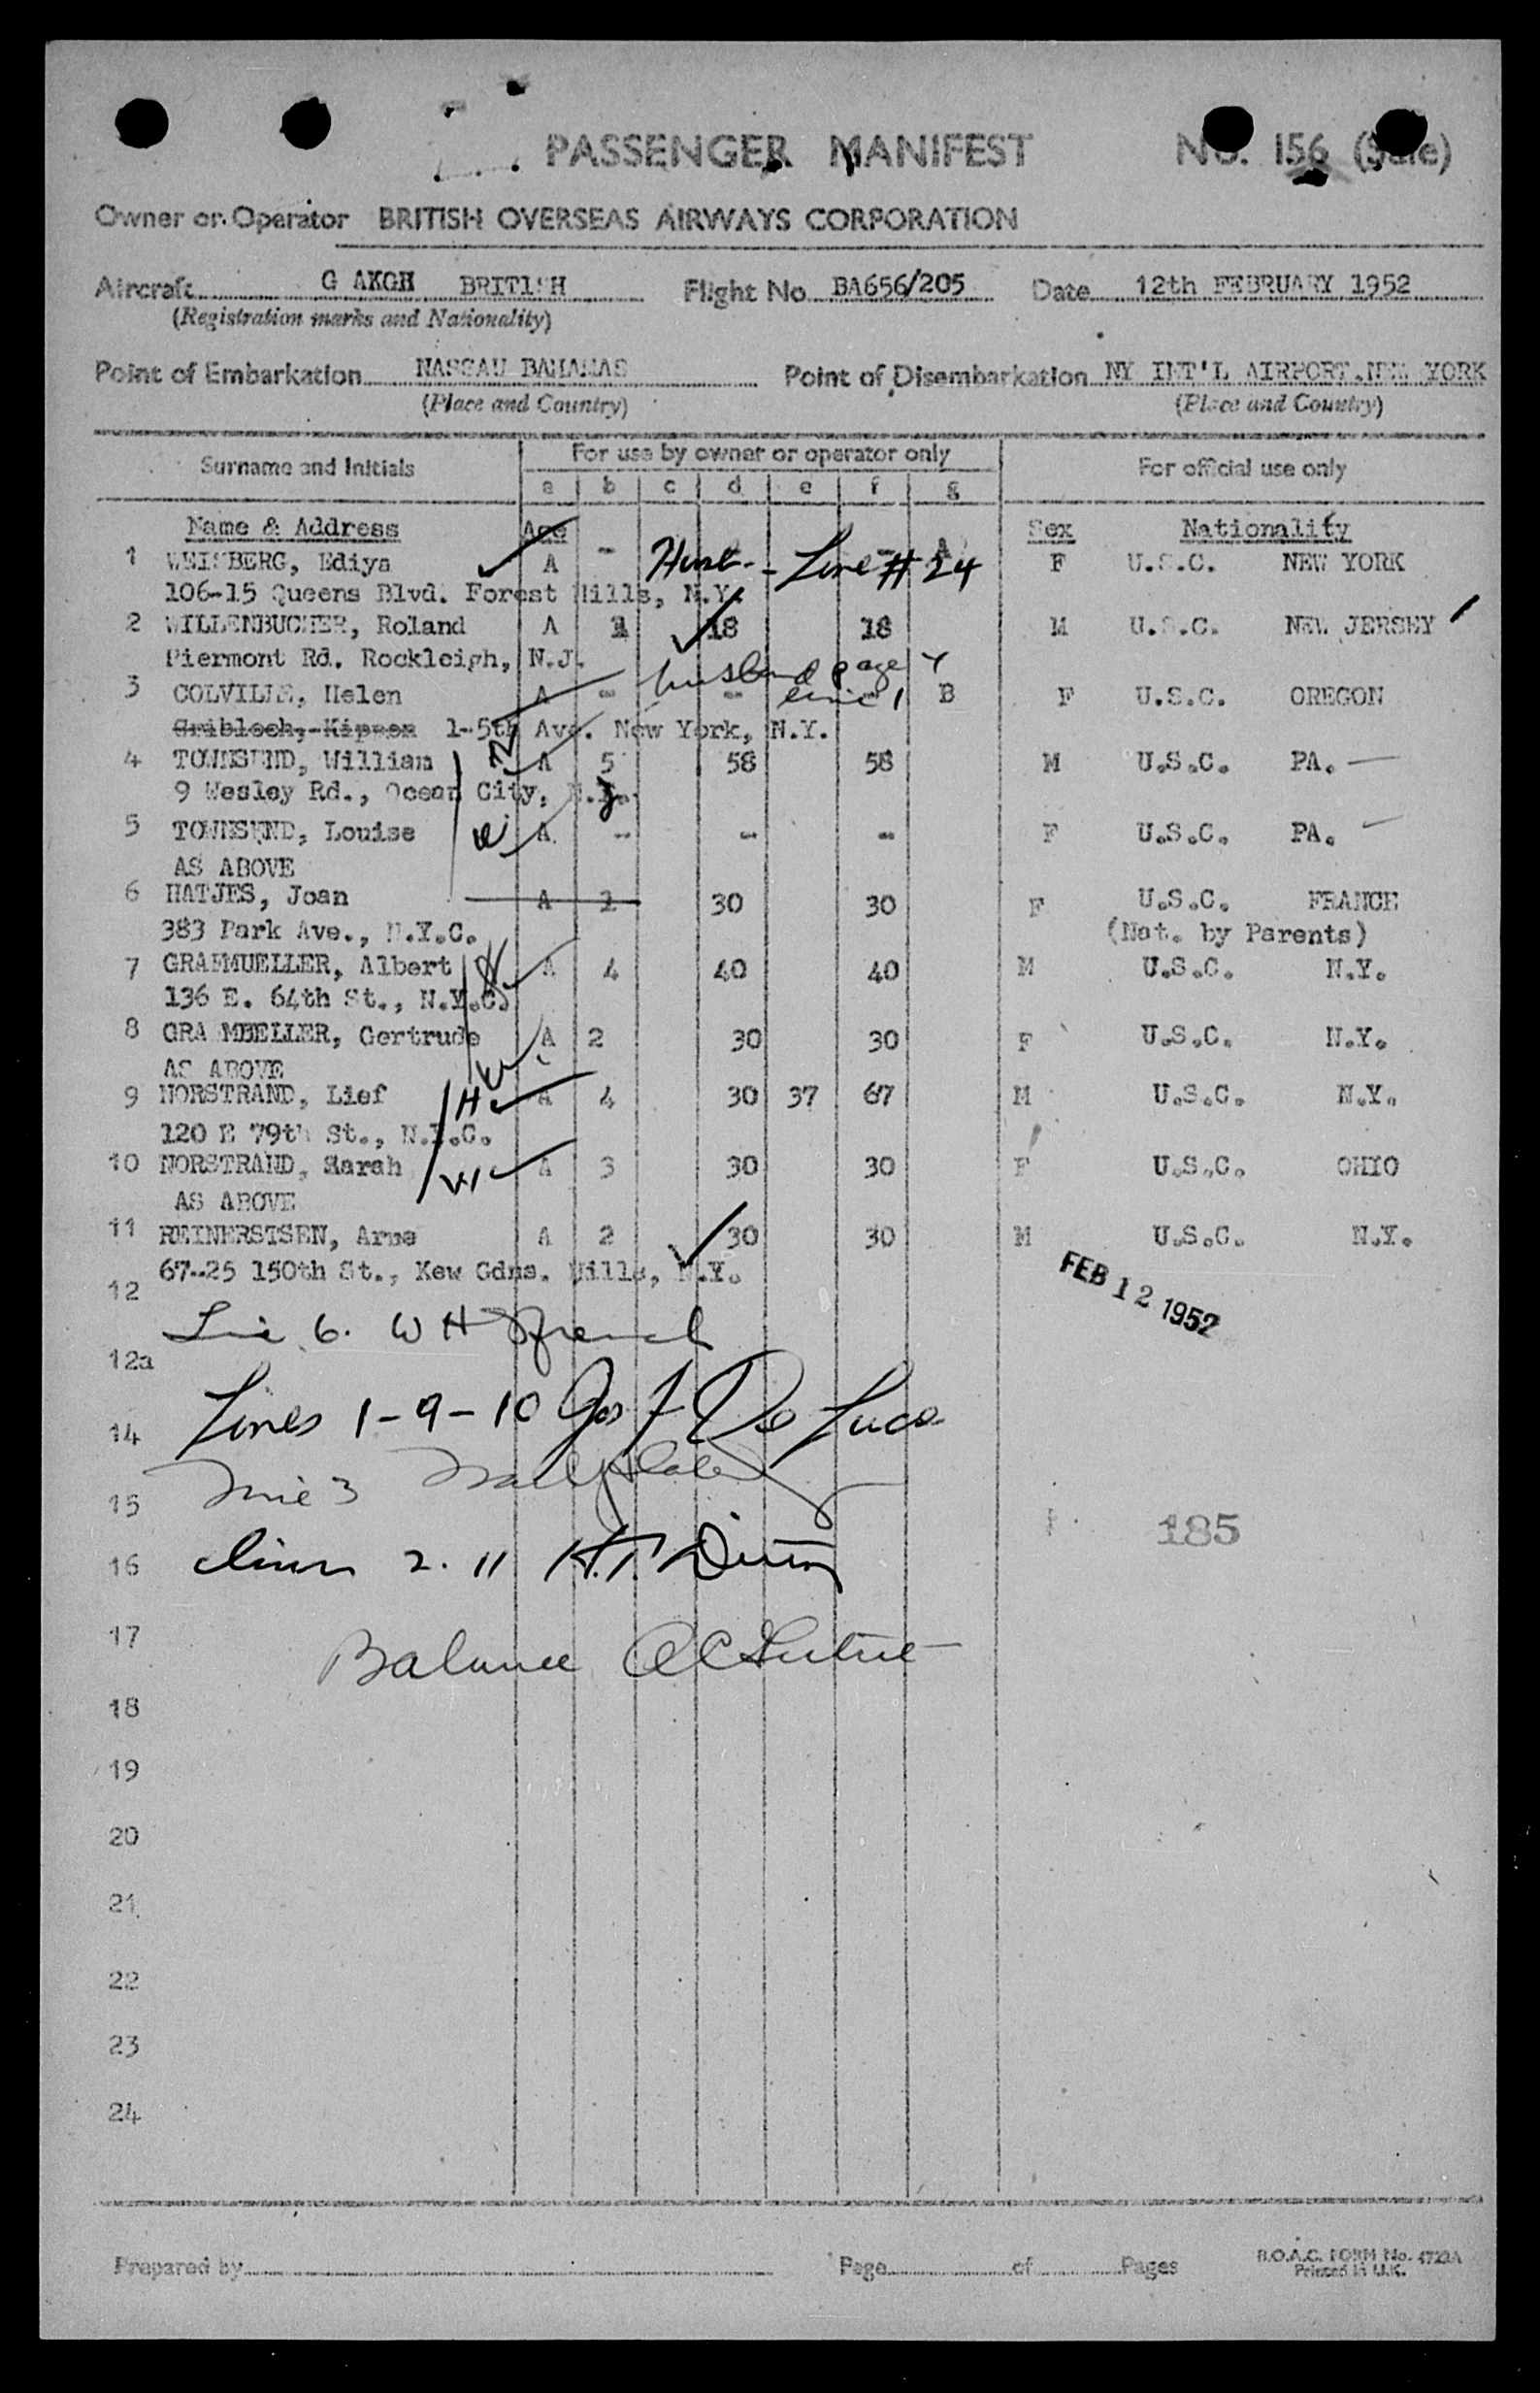 PASSENGER MANIFEST No. 156
Owner or Operator BRITISH OVERSEAS AIRWAYS CORPORATION
Aircraft G AKGH BRITISH Flight No BA656/205 Date 12th FEBRUARY 1952
(Registration marks and Nationality)
Point of Embarkation NASSAU BAHAMAS Point of Disembarkation NY INT'L AIRPORT, NEW YORK
(Place and Country) (Place and Country)
Surname and Initials For use by owner or operator only For official use only
a b c d e f g
Name & Address Age Sex Nationality
1 WEISBERG, Ediya A - Husb - Line # 24 F U.S.C. NEW YORK
106-15 Queens Blvd. Forest Hills, N.Y.
2 WILLENBUCHER, Roland A 1 18 18 M U.S.C. NEW JERSEY
Piermont Rd. Rockleigh, N.J.
husband page 4
3 COLVILLE, Helen A - - line 1 B F U.S.C. OREGON
Gribloch, Kippen 1-5th Ave. New York, N.Y.
4 TOWNSEND, William H A 5 58 58 M U.S.C. PA.
9 Wesley Rd., Ocean City, N.J.
5 TOWNSEND, Louise W A - - - F U.S.C. PA.
AS ABOVE
6 HATJES, Joan A 2 30 30 F U.S.C. FRANCE
383 Park Ave., N.Y.C. (Nat. by Parents)
7 GRAFMUELLER, Albert H A 4 40 40 M U.S.C. N.Y.
136 E. 64th St., N.Y.C.
8 GRA MBELLER, Gertrude A 2 30 30 F U.S.C. N.Y.
AS ABOVE W
9 NORSTRAND, Lief H A 4 30 37 67 M U.S.C. N.Y.
120 E 79th St., N.Y.C.
10 NORSTRAND, Sarah W A 3 30 30 F U.S.C. OHIO
AS ABOVE
11 REINERSTSEN, Arne A 2 30 30 M U.S.C. N.Y.
67-25 150th St., Kew Gdns. Hills, N.Y.
FEB 12 1952
12
Line 6. W H French
12a
Lines 1-9-10 Jos F De Luca
14
Line 3
15 185
16 Lines 2. 11
17
Balance
18
19
20
21
22
23
24
Prepared by Page of Pages B.O.A.C. FORM No. 4723A
Printed in U.K.